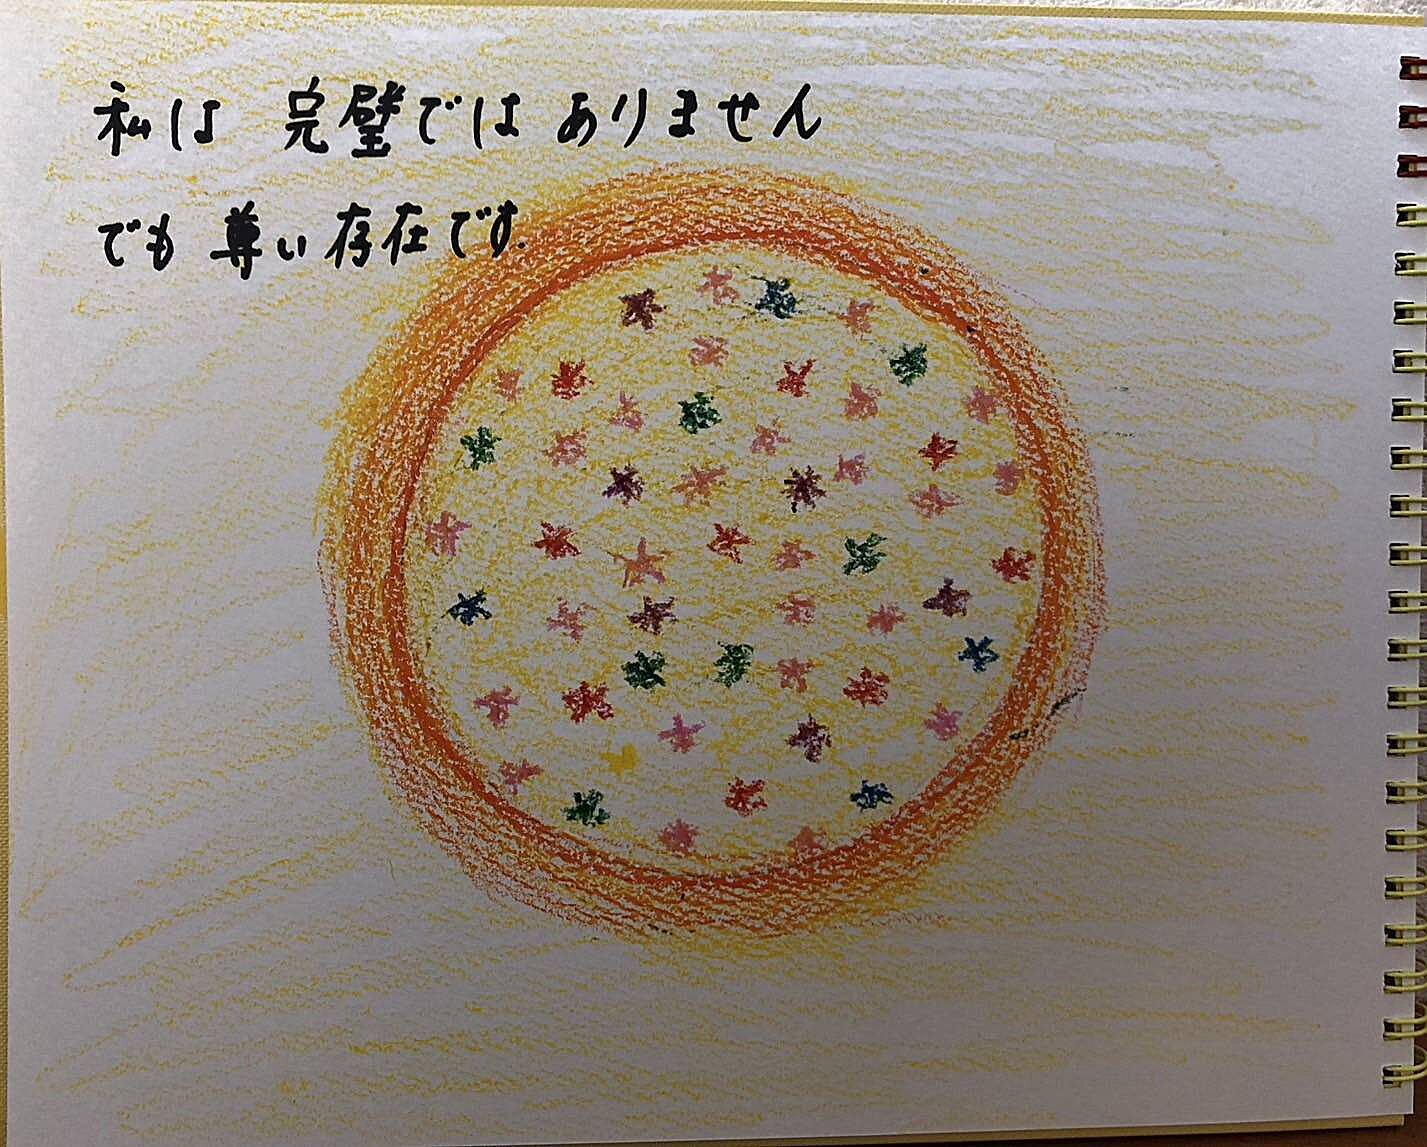 私は 完璧ではありません
でも 尊い存在です.